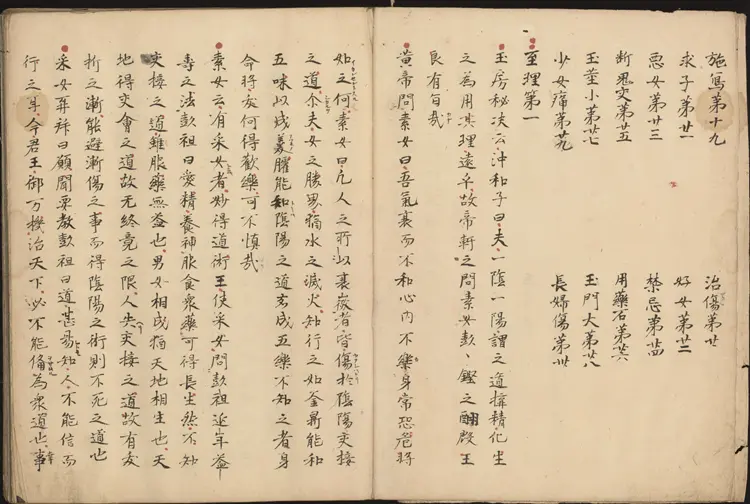 施寫第十九 治傷第廿
求子第廿一 好女第廿二
惡女第廿三 禁忌第廿四
断鬼交第廿五 用藥石第廿六
玉莖小第廿七 玉門大第廿八
少女痛第廿九 長婦傷第卅
至理第一
玉房秘决云沖和子曰夫一陰一陽謂之道構精化生
之為用其理遠乎故帝軒之問素女彭鏗之酬殷王
良有旨哉
黄帝問素女曰吾氣衰而不和心内不樂身常恐危将
如之何素女曰凡人之所以衰微者皆傷於陰陽交接
之道尒夫女之勝男猶水之滅火知行之如釜鼎能和
五味以成羹臛能知陰陽之道悉成五樂不知之者身
命将夭何得歡樂可不慎哉
素女云有采女者妙得道術王使采女問彭祖延年益
壽之法彭祖曰愛精養神服食衆藥可得長生然不知
交接之道雖服藥無益也男女相成猶天地相生也天
地得交會之道故无終竟之限人失交接之道故有夭
折之漸能避漸傷之事而得陰陽之術則不死之道也
采女再拜曰願聞要教彭祖曰道甚易知人不能信而
行之耳今君王御万機治天下必不能備為衆道也事